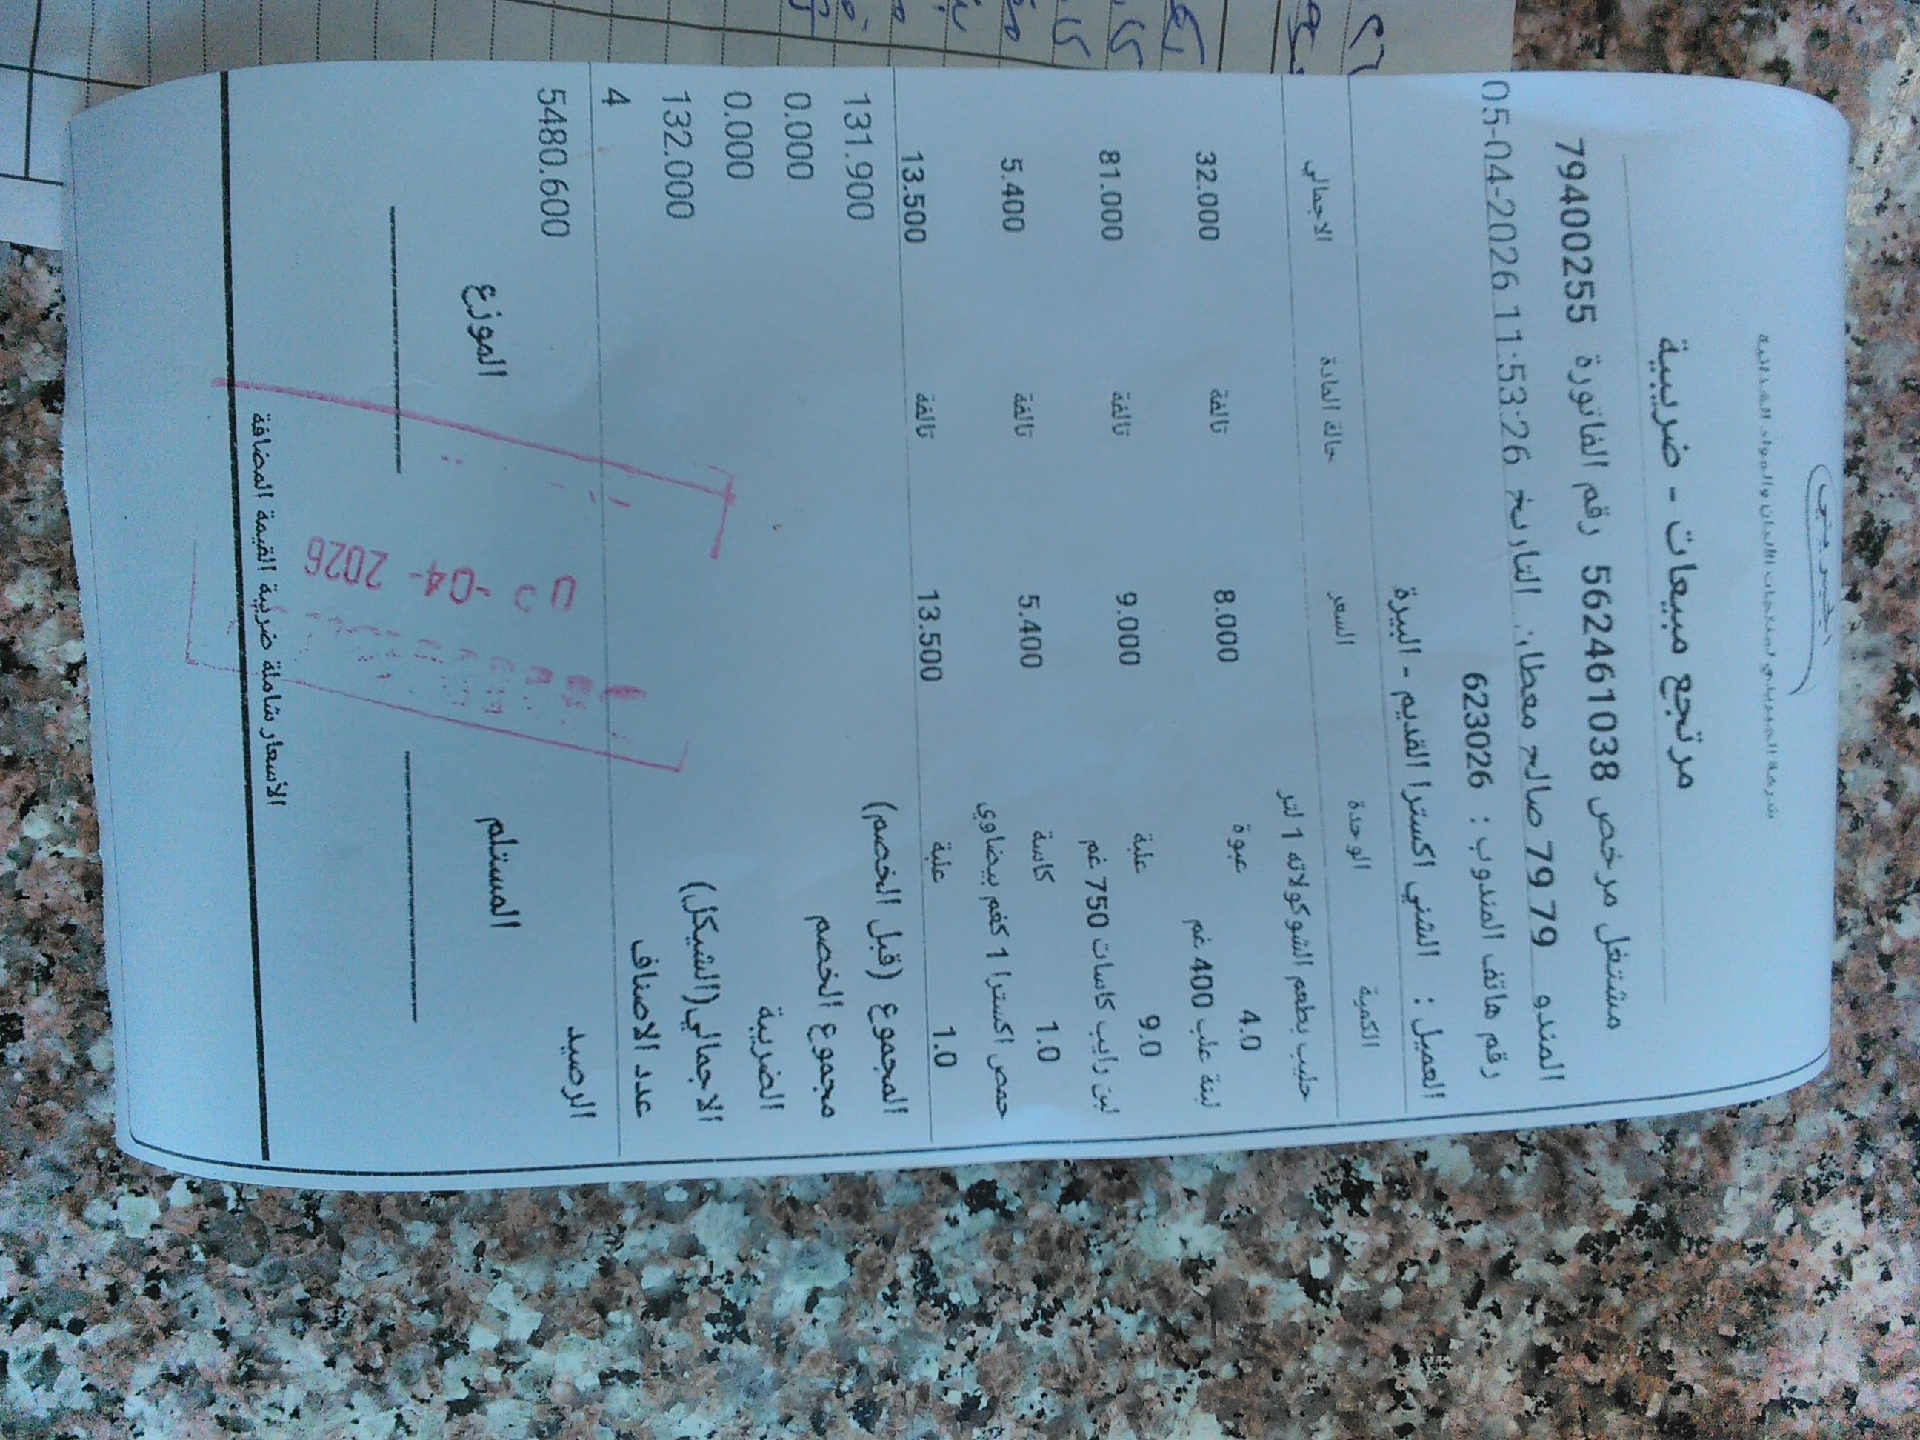 الجبريني
شركة الجبريني لمنتجات الالبان والمواد الغذائية
مرتجع مبيعات - ضريبية
مشتغل مرخص 562461038 رقم الفاتورة 79400255
المندو 79 79 صالح معطان التاريخ 05-04-2026 11:53:26
رقم هاتف المندوب : 623026
العميل : الشني اكسترا القديم - البيرة
الكمية الوحدة السعر حالة المادة الاجمالي
حليب بطعم الشوكولاته 1 لتر
4.0 عبوة 8.000 تالفة 32.000
لبنة علب 400 غم
9.0 علبة 9.000 تالفة 81.000
لبن رايب كاسات 750 غم
1.0 كاسة 5.400 تالفة 5.400
حمص اكسترا 1 كغم بيضاوي
1.0 علبة 13.500 تالفة 13.500
المجموع (قبل الخصم) 131.900
مجموع الخصم 0.000
الضريبة 0.000
الاجمالي(الشيكل) 132.000
عدد الاصناف 4
الرصيد 5480.600
المستلم الموزع
-04- 2026
الأسعار شاملة ضريبة القيمة المضافة